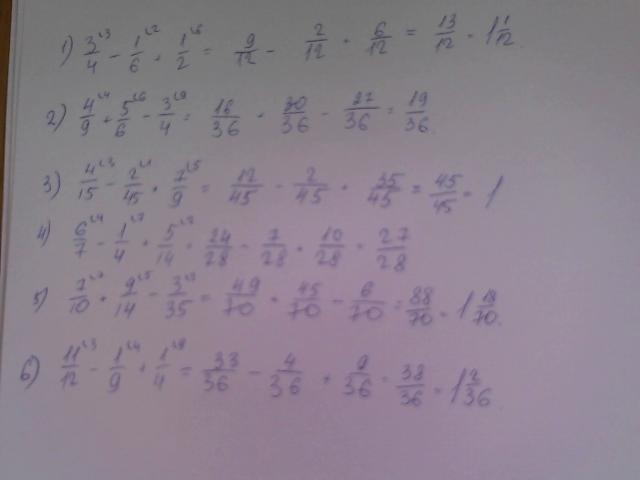 1) 3/4 ⌞3 - 1/6 ⌞2 + 1/2 ⌞6 = 9/12 - 2/12 + 6/12 = 13/12 = 1 1/12.
2) 4/9 ⌞4 + 5/6 ⌞6 - 3/4 ⌞9 = 16/36 + 30/36 - 27/36 = 19/36.
3) 4/15 ⌞3 - 2/45 ⌞1 + 7/9 ⌞5 = 12/45 - 2/45 + 35/45 = 45/45 = 1
4) 6/7 ⌞4 - 1/4 ⌞7 + 5/14 ⌞2 = 24/28 - 7/28 + 10/28 = 27/28
5) 7/10 ⌞7 + 9/14 ⌞5 - 3/35 ⌞2 = 49/70 + 45/70 - 6/70 = 88/70 = 1 18/70.
6) 11/12 ⌞3 - 1/9 ⌞4 + 1/4 ⌞9 = 33/36 - 4/36 + 9/36 = 38/36 = 1 2/36.